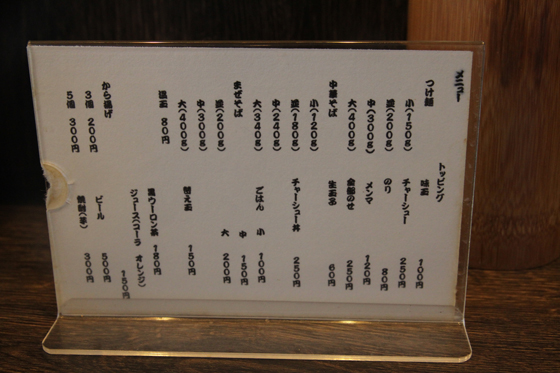 メニュー
つけ麺
小(150g)
並(200g)
中(300g)
大(400g)
中華そば
小(120g)
並(180g)
中(240g)
大(340g)
まぜそば
並(200g)
中(300g)
大(400g)
温玉 80円
から揚げ
3個 200円
5個 300円
トッピング
味玉 100円
チャーシュー 250円
のり 80円
メンマ 120円
全部のせ 250円
生玉子 60円
チャーシュー丼 250円
ごはん 小 100円
中 150円
大 200円
替え玉 150円
黒ウーロン茶 180円
ジュース(コーラ オレンジ) 150円
ビール 500円
焼酎(芋) 300円